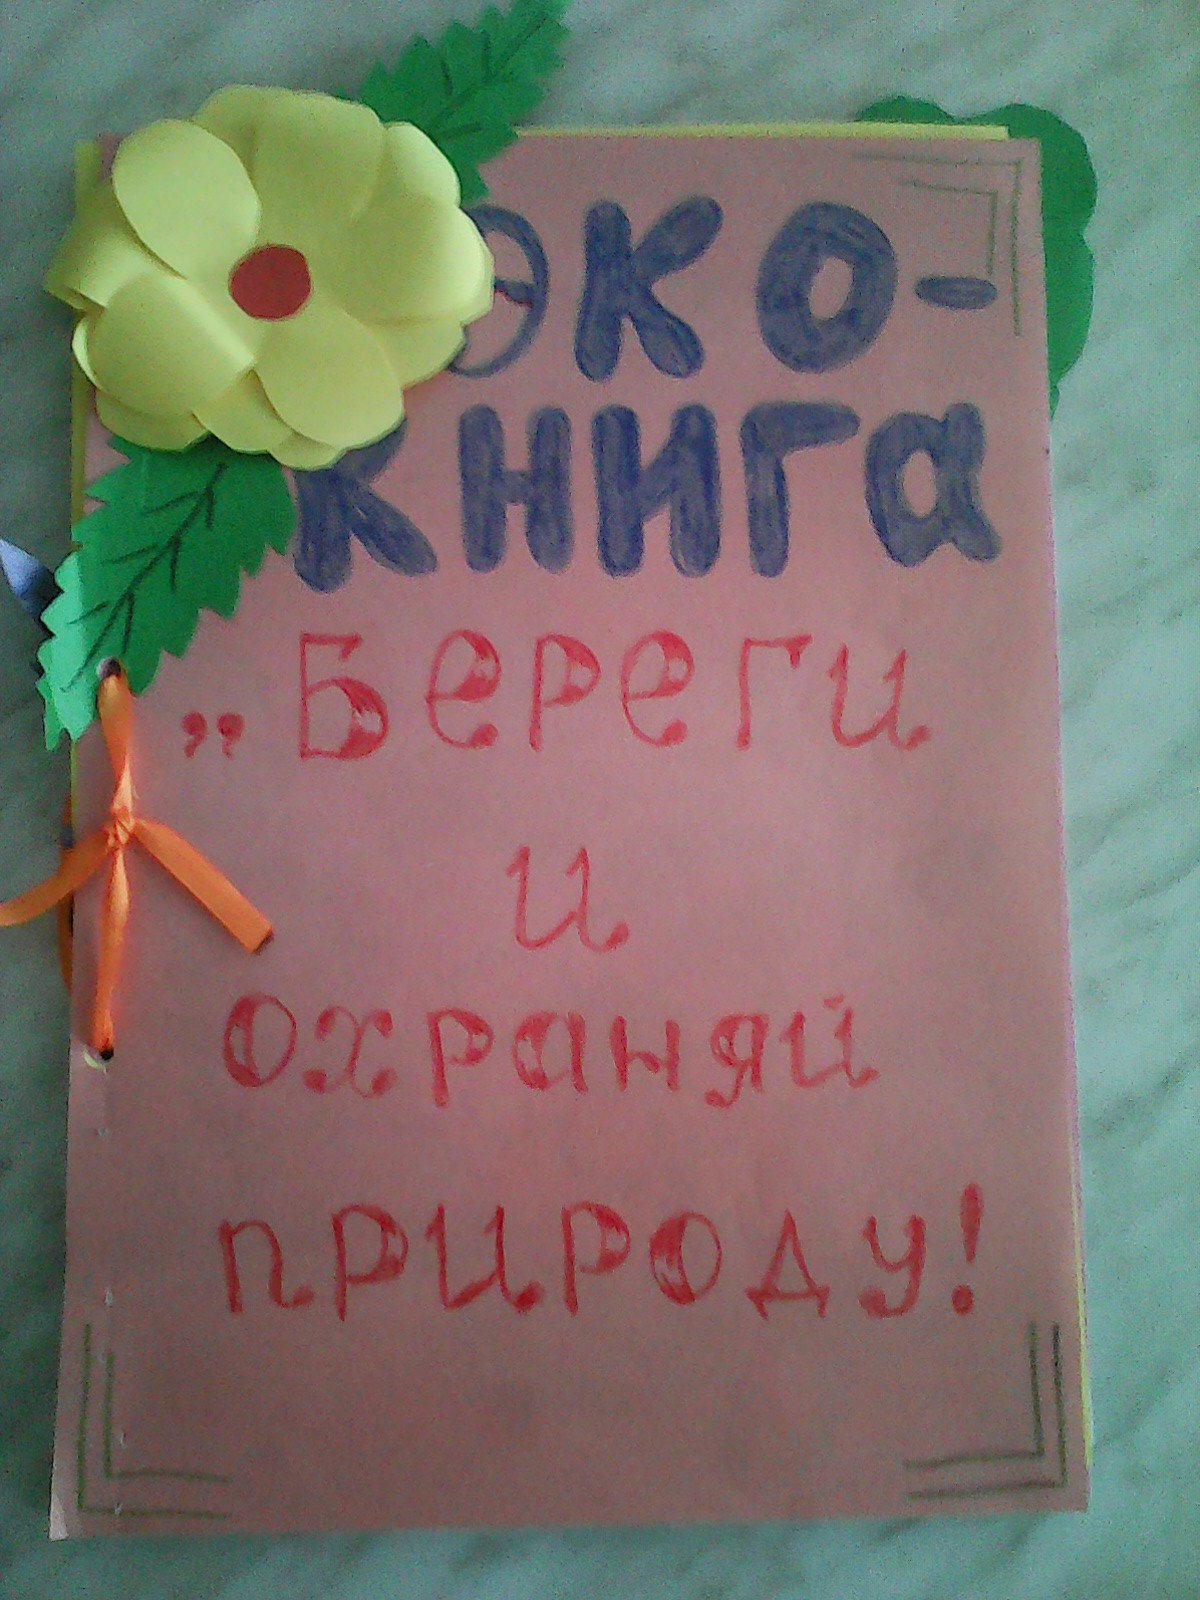 Эко-
книга
„Береги
и
охраняй
природу!